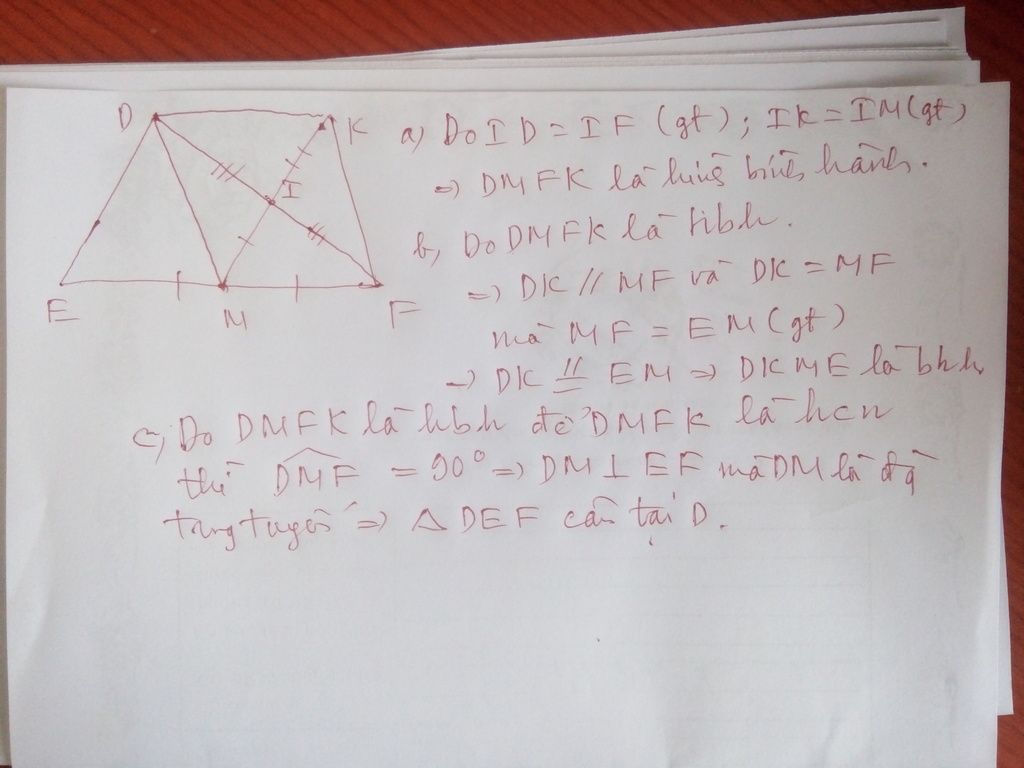 D
K
I
E
M
F
a, Do ID = IF (gt); IK = IM (gt)
=> DMFK là hình bình hành.
b, Do DMFK là hbh.
=> DK // MF và DK = MF
mà MF = EM (gt)
-> DK // = EM => DKME là bhh
c, Do DMFK là hbh để DMFK là hcn
thì DMF = 90° => DM ⊥ EF mà DM là đg
trung tuyến => △ DEF cân tại D.